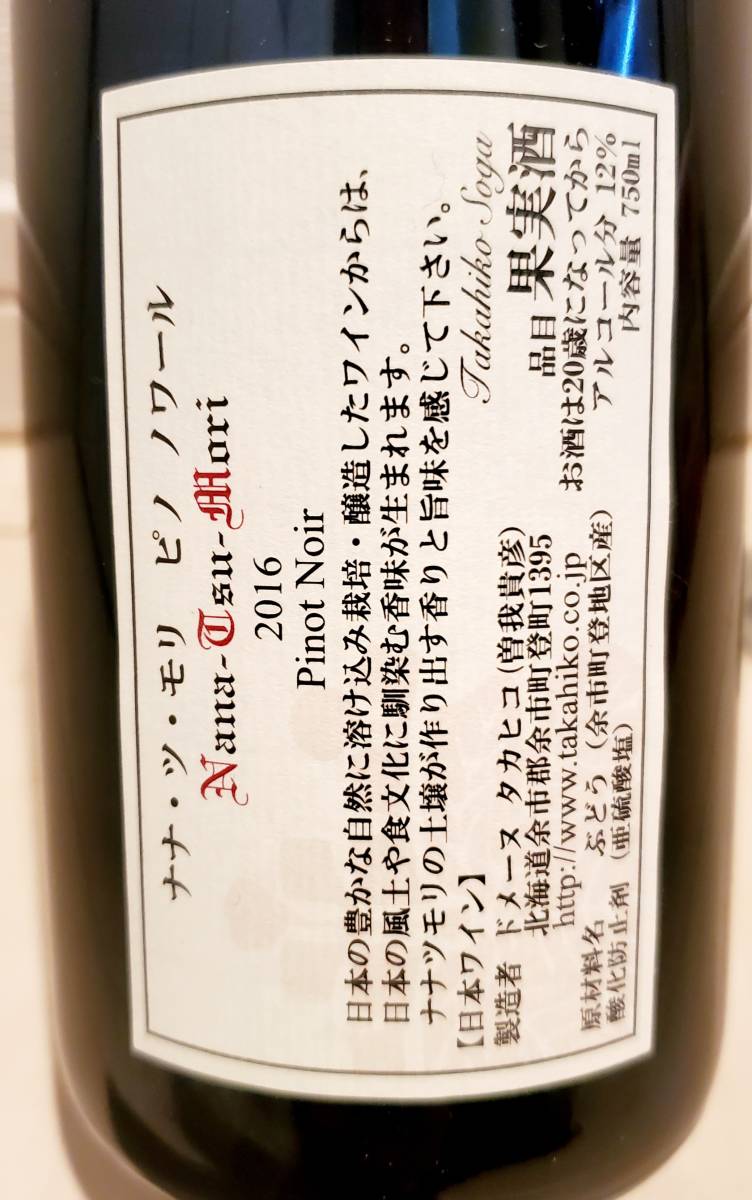 ナナ・ツ・モリ ピノ ノワール
Nana-Tsu-Mori
2016
Pinot Noir
日本の豊かな自然に溶け込み栽培・醸造したワインからは、
日本の風土や食文化に馴染む香味が生まれます。
ナナツモリの土壌が作り出す香りと旨味を感じて下さい。
Takahiko Soga
【日本ワイン】
品目 果実酒
製造者 ドメーヌ タカヒコ(曽我貴彦)
北海道余市郡余市町登町1395
http://www.takahiko.co.jp
お酒は20歳になってから
原材料名 ぶどう(余市町登地区産)
アルコール分 12%
酸化防止剤(亜硫酸塩)
内容量 750ml